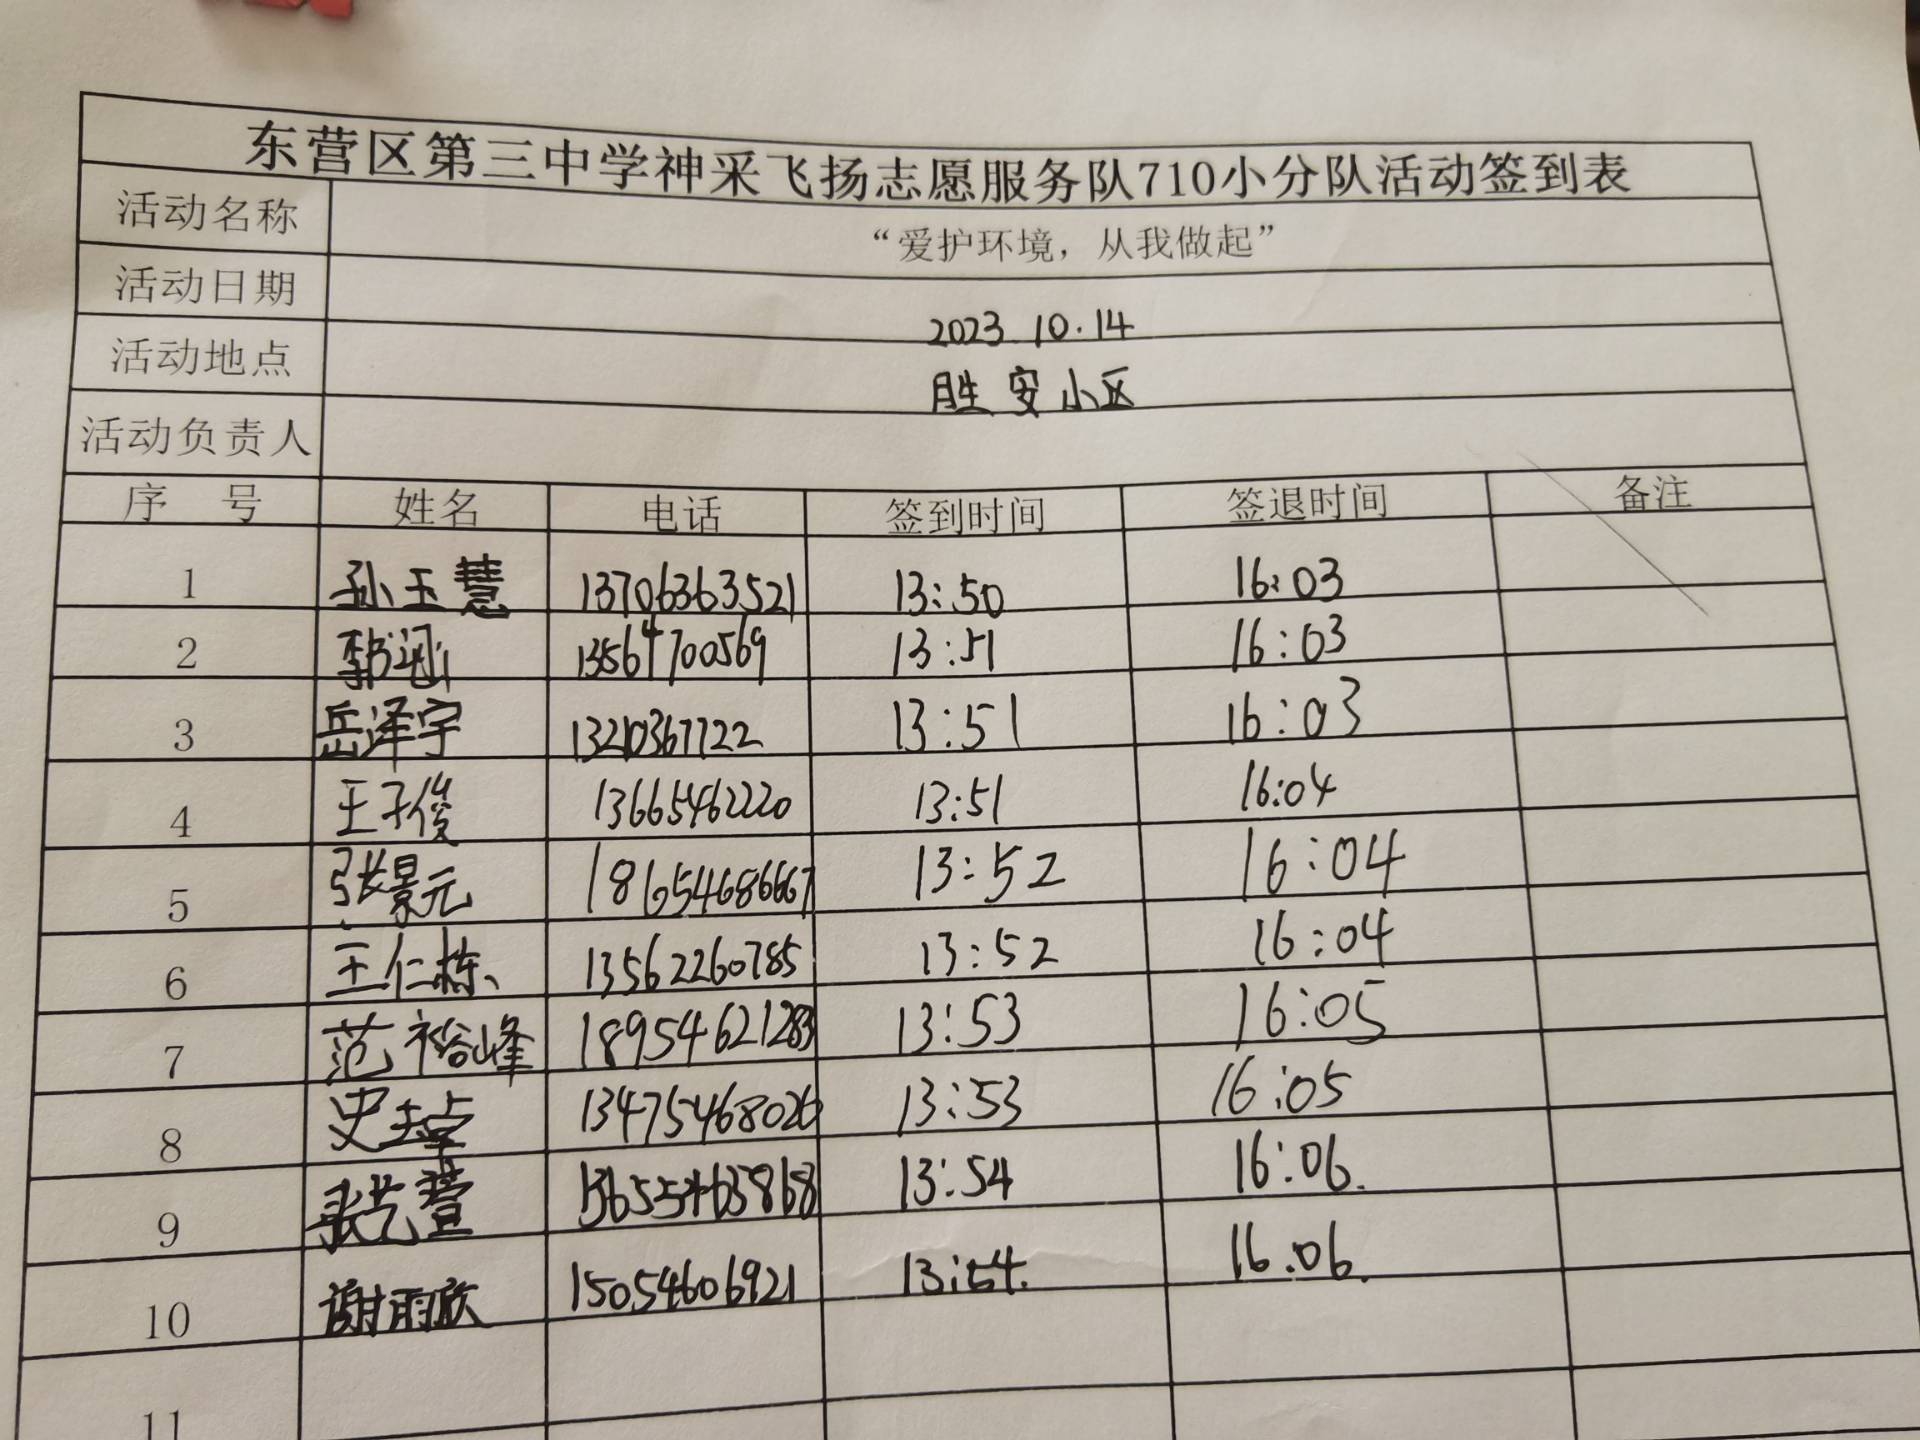 东营区第三中学神采飞扬志愿服务队710小分队活动签到表
活动名称 “爱护环境，从我做起”
活动日期 2023.10.14
活动地点 胜安小区
活动负责人
序 号 姓名 电话 签到时间 签退时间 备注
1 孙玉慧 13706363521 13:50 16:03
2 13564700569 13:51 16:03
3 岳泽宇 13210367722 13:51 16:03
4 王子俊 13665462220 13:51 16:04
5 张景元 13:52 16:04
6 王仁栋 13562260785 13:52 16:04
7 范裕峰 18954621283 13:53 16:05
8 13475468026 13:53 16:05
9 张艺萱 13655463868 13:54 16:06.
10 谢雨欣 15054606921 13:54. 16.06.
11